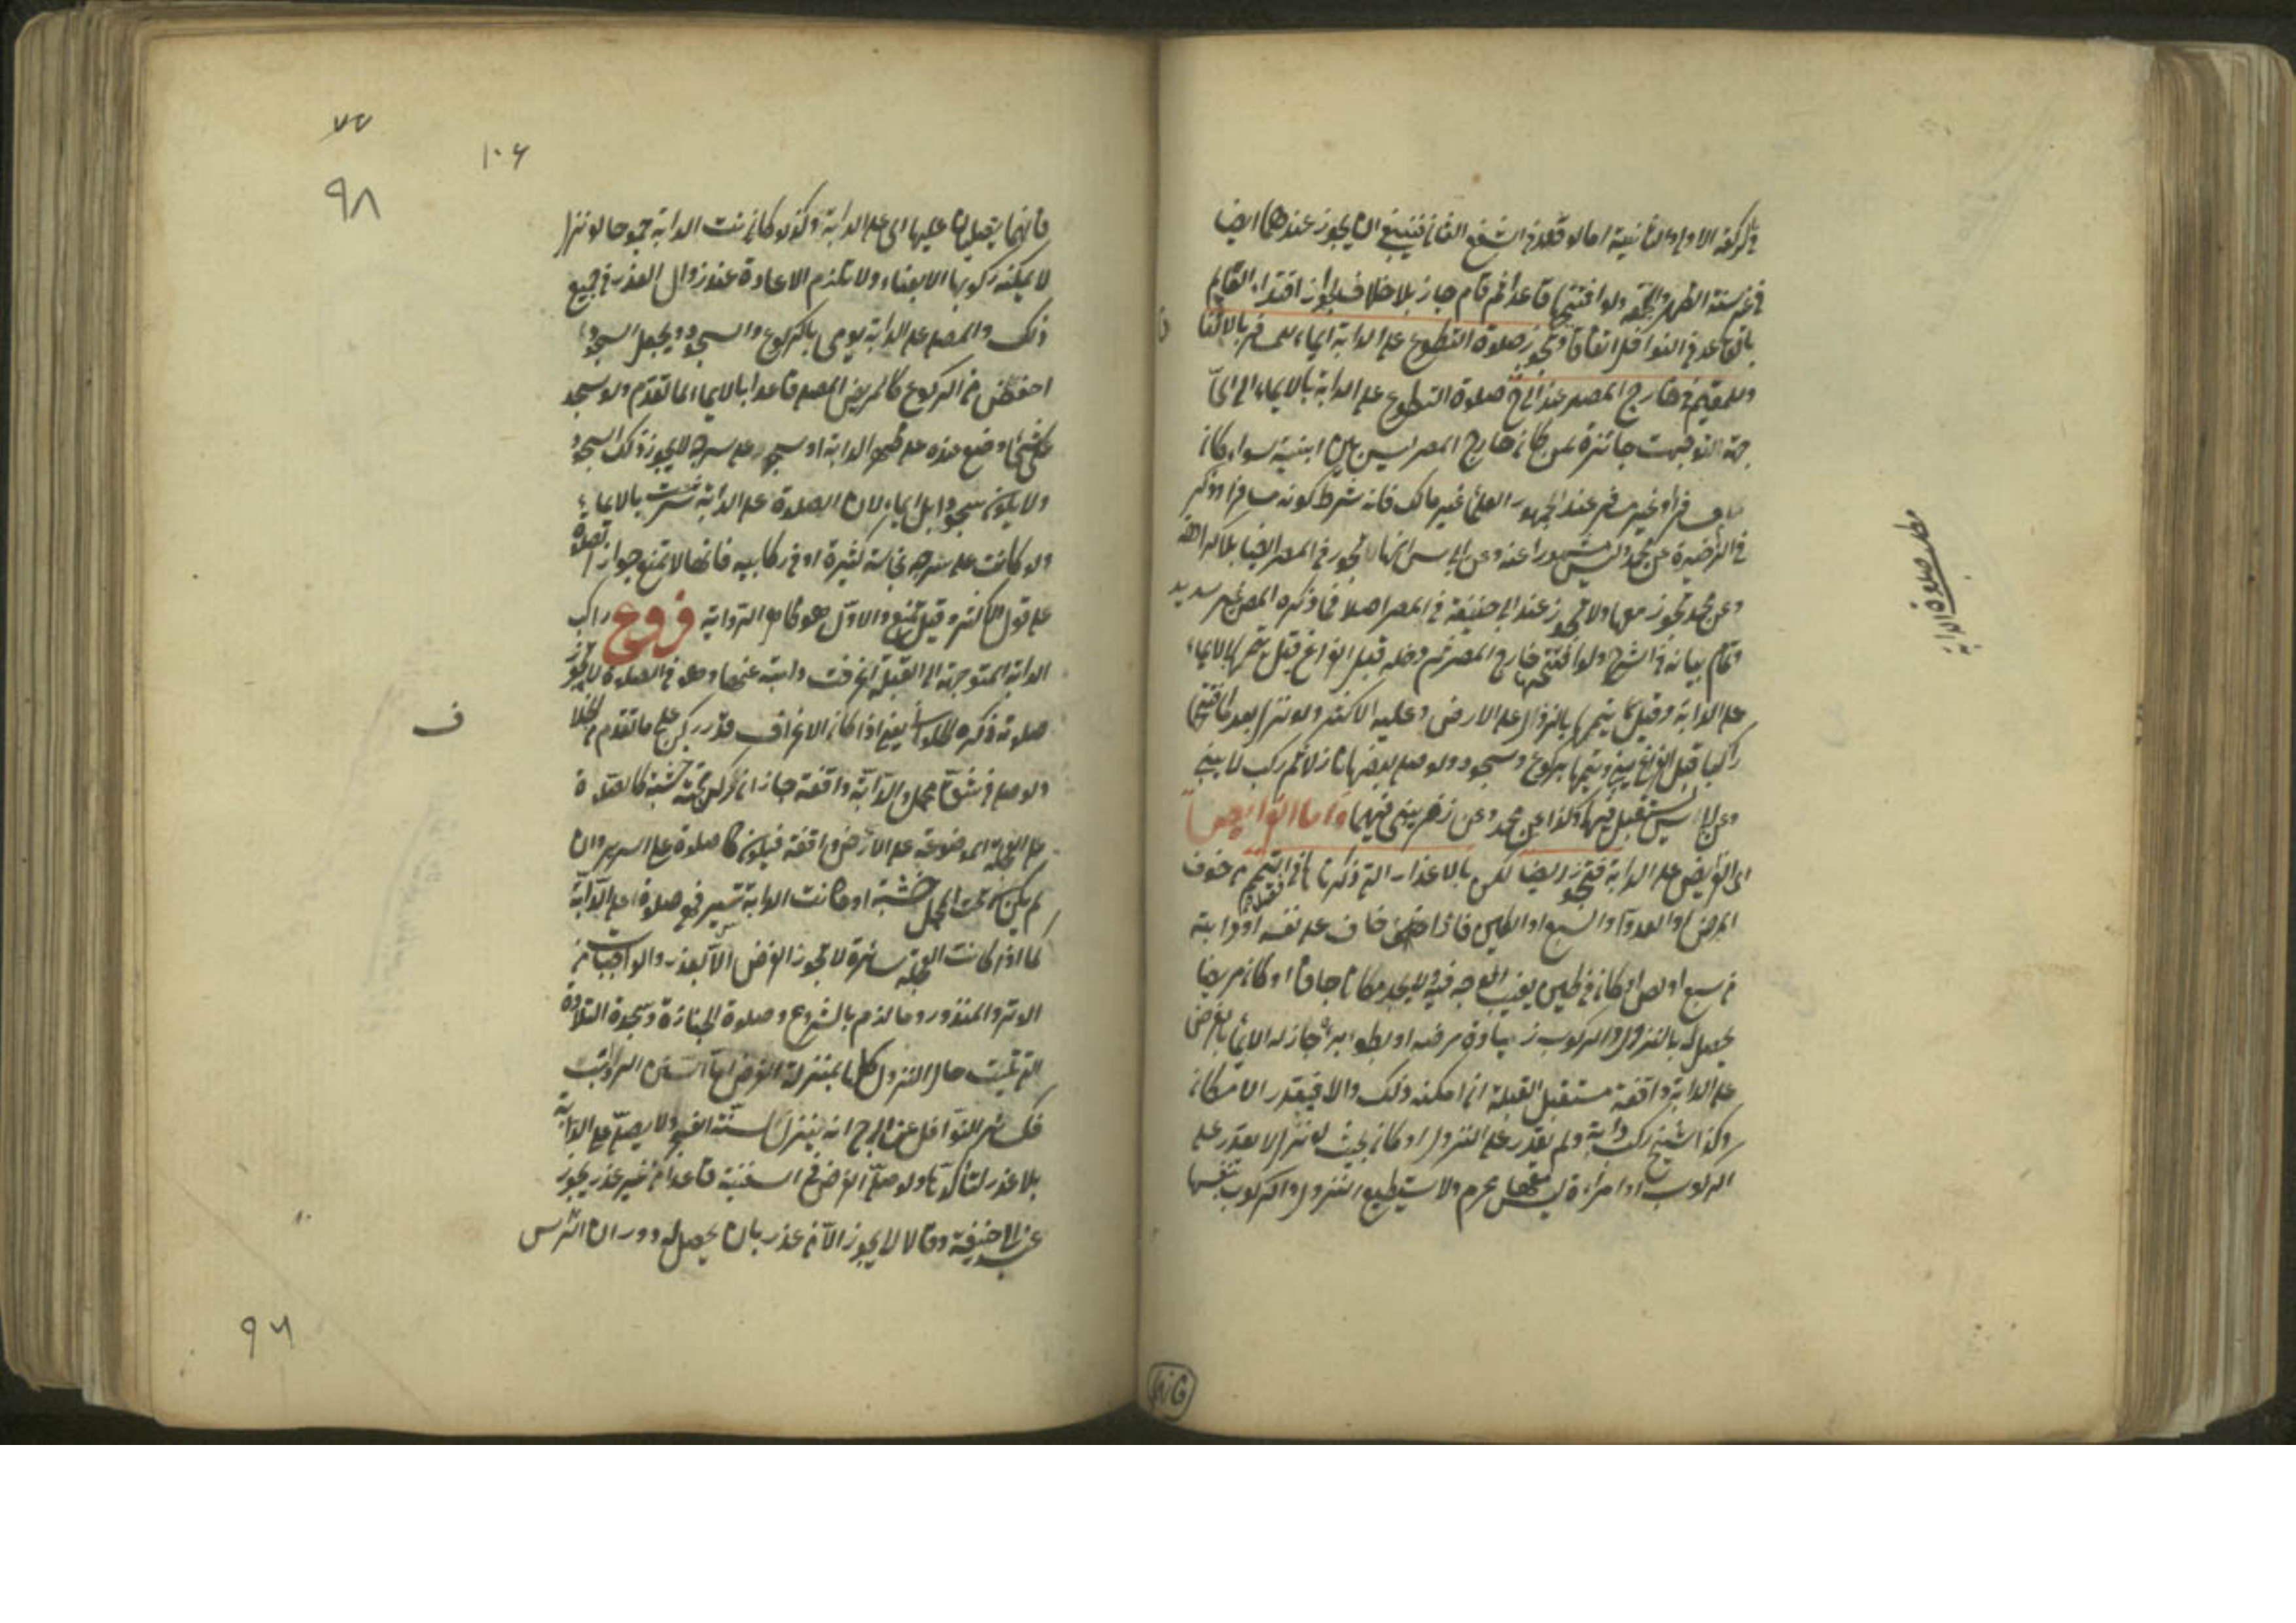 في الركعة الاولى والثانية اما لو قعد في الشفع الثاني فينبغي ان يجوز عندهما ايضا
في غير سنة الظهر والجمعة ولو افتتحها قاعدا ثم قام جاز بلا خلاف لجواز اقتداء القايم
بالقاعد في النوافل اتفاقا وتجوز صلوة التطوع على الدابة ايماء للمسافر بالاتفاق
وللمقيم في خارج المصر عند ابي ح صلوة التطوع على الدابة بالايماء الى اي
جهة التوجهت جائزة لمن كان خارج المصر ليس بين ابنية سواء كان
مسافرا او غير مسافر عند الجمهور العلماء غير مالك فانه شرط كونه مسافرا وذكر
في الذخيرة عن محمد وليس مشهورا عنه وعن ابي س انها تجوز في المصر ايضا بلا كراهة
وعن محمد تجوز معها ولا تجوز عند ابي حنيفة في المصر اصلا فما ذكره المص غير سديد
وتمام بيانه في الشرح ولو افتتحها خارج المصر ثم دخله قبل الفراغ قيل يتمها بالايماء
على الدابة وقيل يتمها بالنزول على الارض وعليه الاكثر ولو نزل بعد ما افتتحها
راكبا قبل الفراغ يبني ويتمها بركوع وسجود ولو صلى بعضها نازلا ثم ركب لا يبني
وعن ابي س يستقبل فيهما وكذا عن محمد وعن زفر يبني فيهما واما الفرايض
اي الفرايض على الدابة فتجوز ايضا لكن بالاعذار التي ذكرناها في التيمم من خوف
المرض او العدو او السبع او الطين فاذا خاف على نفسه او دابته
من سبع او لص او كان في طين يغيب الوجه فيه لا يجد مكانا جافا او كان مريضا
يحصل له بالنزول والركوب زيادة مرضه او بطوء برء جاز له الايماء بالفرض
على الدابة واقفة مستقبل القبلة ان امكنه ذلك والا فبقدر الامكان
وكذا الشيخ ركب دابة ولم يقدر على النزول او كان بحيث لو نزل لا يقدر على
الركوب او امراءة ليس معها محرم ولا تستطيع النزول والركوب بنفسها
مطلب صلوة الدابة
فانهما يصليان عليها اى على الدابة وكذا لو كانت الدابة جموحا لو نزل
لا يمكنه ركوبها الا بعناء ولا تلزم الاعادة عند زوال العذر في جميع
ذلك والمصلي على الدابة يومي بالركوع والسجود ويجعل السجود
اخفض من الركوع كالمريض المصلي قاعدا بالايماء لما تقدم ولو سجد
على شيء وضع عنده على ظهر الدابة او سجد على سرجه لا يجوز ذلك السجود
ولا يكون سجودا بل ايماء لان الصلوة على الدابة شرعت بالايماء
ولو كانت على سرجه نجاسة كثيرة او في ركابيه فانها لا تمنع جواز الصلوة
على قول الاكثر وقيل تمنع والاول هو ظاهر الرواية فروع راكب
الدابة المتوجهة الى القبلة انحرفت دابته عنها وهو في الصلوة لا تجوز
صلوته ذكره يعني اذا كان الانحراف قدر ركن على ما تقدم
ولو صلى في شق محمل والدابة واقفة جاز ان ركز تحته خشبة كالصلوة
على العجلة الموضوعة على الارض واقفة فيكون كالصلوة على السرير وان
لم يكن تحت المحمل خشبة او كانت الدابة تسير فهي صلوة على الدابة
كما اذا كانت العجلة سائرة لا تجوز الفرض الا لعذر والواجبات من
الوتر والمنذور وما لزم بالشروع وصلوة الجنازة وسجدة التلاوة
التي تليت حال النزول كلها بمنزلة الفرض اما السنن الرواتب
فكسائر النوافل عن ابي ح انه ينزل لسنة الفجر ولا يصلي على الدابة
بلا عذر لتأكدها ولو صلى الفرض في السفينة قاعدا من غير عذر يجوز
عند ابي حنيفة وقالا لا يجوز الا من عذر بان يحصل له دوران الرأس
ف
١٠٦
٩٨